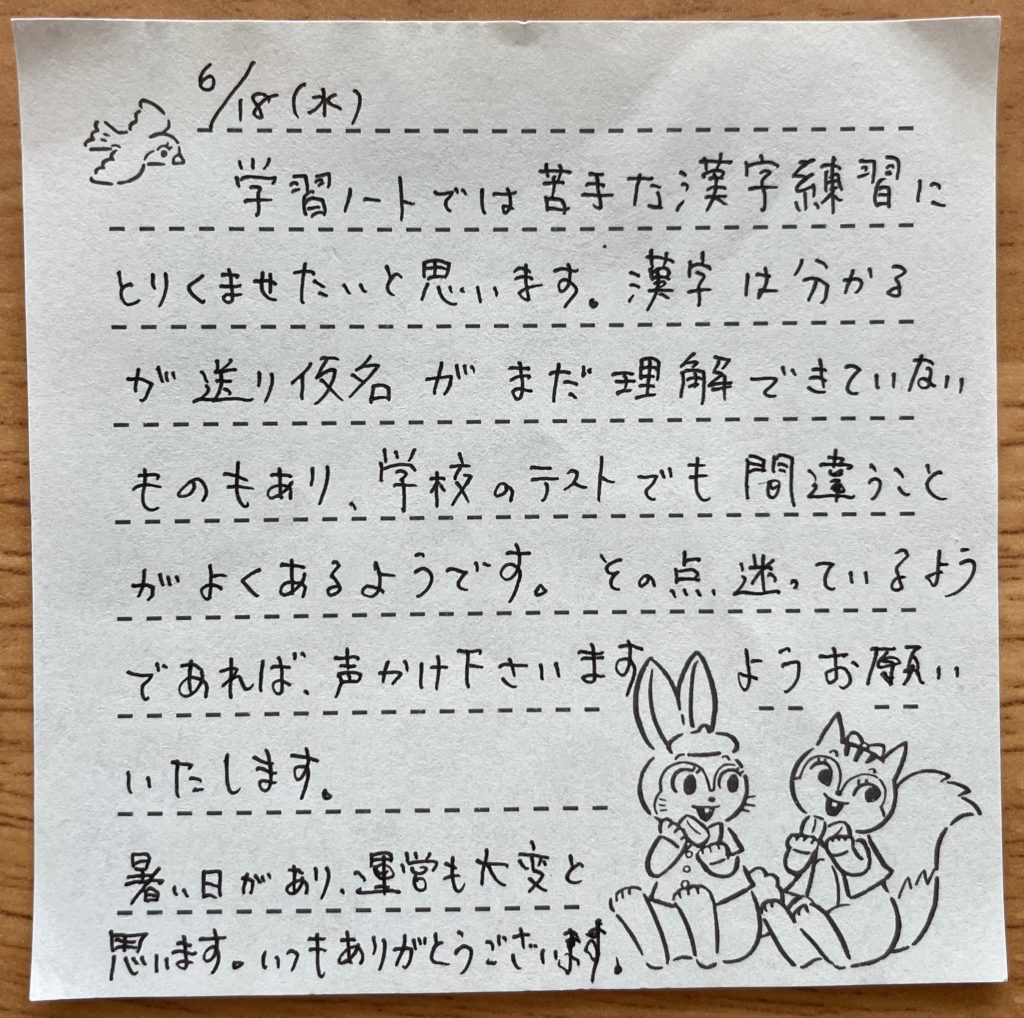 6/18(水)
学習ノートでは苦手な漢字練習に
とりくませたいと思います。漢字は分かる
が送り仮名がまだ理解できていない
ものもあり、学校のテストでも間違うこと
がよくあるようです。その点迷っているよう
であれば、声かけ下さいますようお願い
いたします。
暑い日があり、運営も大変と
思います。いつもありがとうございます。